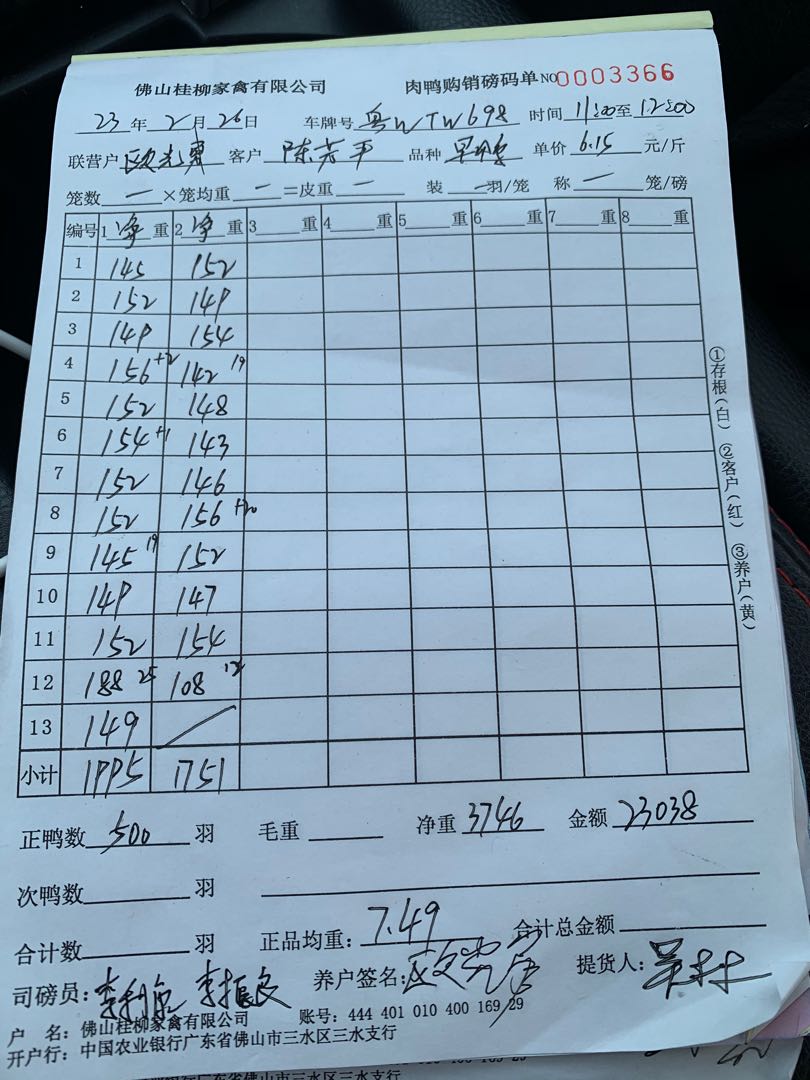 佛山桂柳家禽有限公司 肉鸭购销磅码单 NO 0003366
23年2月26日 车牌号 粤WTW698 时间 11:00至12:00
联营户 客户 陈 平 品种 单价 6.15 元/斤
笼数 — ×笼均重 — =皮重 — 装 — 羽/笼 称 — 笼/磅
编号 1 净 重 2 净 重 3 重 4 重 5 重 6 重 7 重 8 重
1 145 152
2 152 149
3 149 154
4 156 +2 142 19
5 152 148
6 154 +1 143
7 152 146
8 152 156 +20
9 145 19 152
10 149 147
11 152 154
12 188 25 108
13 149 /
小计 1995 1751
①存根(白) ②客户(红) ③养户(黄)
正鸭数 500 羽 毛重 净重 3746 金额 23038
次鸭数 羽
合计数 羽 正品均重: 7.49 合计总金额
司磅员: 养户签名: 提货人:
户 名: 佛山桂柳家禽有限公司 账号: 444 401 010 400 169 29
开户行: 中国农业银行广东省佛山市三水区三水支行